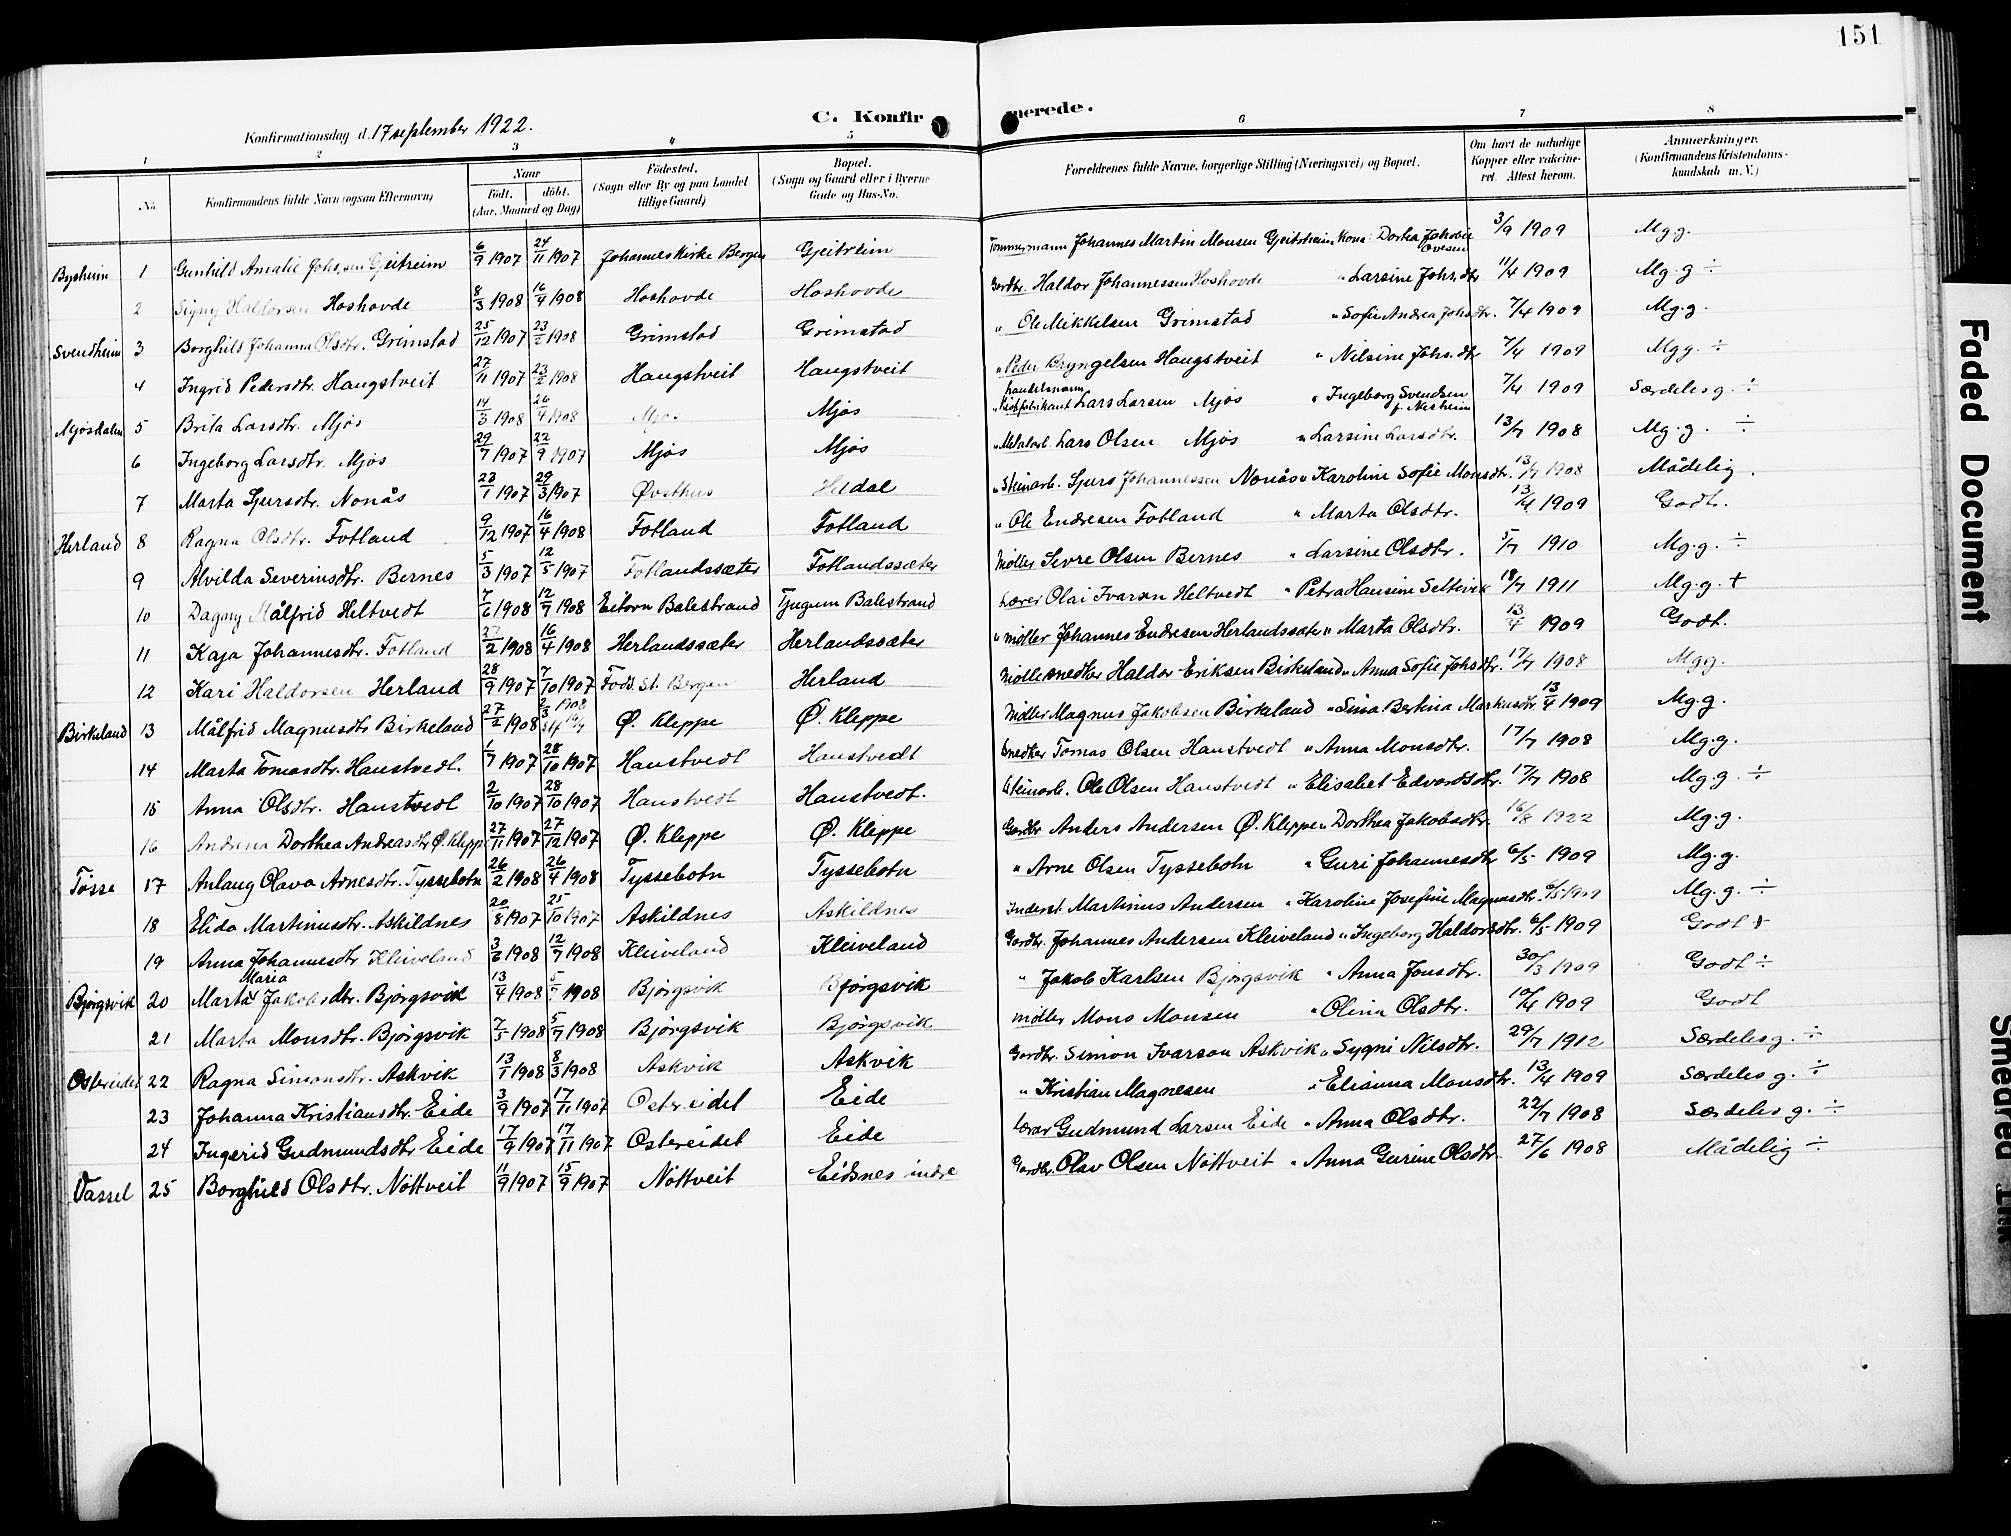 151
C. Konfirmerede.
Konfirmationsdag d. 17 september 1922.
1 2 3 4 5 6 7 8
No.
Konfirmandens fulde Navn (ogsaa Efternavn)
Naar
Födt. döbt.
(Aar, Maaned og Dag)
Födested.
(Sogn eller By og paa Landet
tillige Gaard)
Bopæl.
(Sogn og Gaard eller i Byerne
Gade og Hus-No.
Forældrenes fulde Navne, borgerlige Stilling (Næringsvei) og Bopæl.
Om havt de naturlige
Kopper eller vakcine-
ret. Attest herom.
Anmærkninger.
(Konfirmandens Kristendoms-
kundskab m. V.)
Bysheim 1 Gunhild Amalie Johs,sen Gjeitreim 6/9 1907 24/11 1907 Johannes Kirke Bergen Gjeitreim Tømmermann Johannes Martin Monsen Gjeitrheim Kona Dorthea Jakobie Ovesen 3/9 1909 Mg g.
2 Signy Haldorsen Hoshovde 8/3 1908 16/4 1908 Hoshovde Hoshovde Gardbr. Haldor Johannessen Hoshovde " Larsine Johs.dtr 11/4 1909 Mg. g ÷
Svendheim 3 Borghild Johanna Olsdtr. Grimstad 25/12 1907 23/2 1908 Grimstad Grimstad " Ole Mikkelsen Grimstad " Sofie Andrea Johsdtr. 7/4 1909 Mg. g.
4 Ingrid Pedersdtr. Haugstveit 27/11 1907 23/2 1908 Haugstveit Haugstveit " Peder Bryngelsen Haugstveit " Nilsine Johs.dtr 7/4 1909 Mg g. ÷
Mjøsdalen 5 Brita Larsdtr. Mjøs 14/3 1908 26/4 1908 Mjøs Mjøs handelsmann Lars Larsen Mjøs " Ingeborg Svendsen f. Nesheim 7/4 1909 Særdeles g. ÷
6 Ingeborg Larsdtr. Mjøs 29/7 1907 22/9 1907 Mjøs Mjøs " Lars Olsen Mjøs " Larsine Larsdtr. 13/7 1908 Mg. g. ÷
7 Marta Sjursdtr. Nonås 23/1 1907 29/3 1907 Øvsthus Heldal " Steinarb. Sjurs Johannessen Nonås " Karoline Sofie Monsdtr. 13/7 1908 Mådelig.
Herland 8 Ragna Olsdtr. Fotland 9/12 1907 16/4 1908 Fotland Fotland " Ole Endresen Fotland " Marta Olsdtr. 13/4 1909 Godt.
9 Alvilda Severinsdtr. Bernes 5/3 1907 12/5 1907 Fotlandssæter Fotlandssæter Møller Sevre Olsen Bernes " Larsine Olsdtr. 5/7 1910 Mg. g. ÷
10 Dagny Målfrid Heltvedt 7/6 1908 12/7 1908 Eitorn Balestrand Tjugum Balestrand Lærer Olai Ivarsen Heltvedt " Petra Hansine Seltevik 18/7 1911 Mg. g. +
11 Kaja Johannesdtr. Fotland 2/2 1908 16/4 1908 Herlandssæter Herlandssæter " Møller Johannes Endresen Herlandssæter " Marta Olsdtr. 13/4 1909 Godt.
12 Kari Haldorsen Herland 28/9 1907 7/10 1907 Föds. St. Bergen Herland Møllesnedker Haldor Eriksen Birkeland " Anna Sofie Johsdtr. 17/7 1908 Mg g.
Birkeland 13 Målfrid Magnusdtr Birkeland 27/2 1908 2/3 1908 Ø. Kleppe Ø. Kleppe Møller Magnus Jakobsen Birkeland " Sina Bertina Markusdtr 13/4 1909 Mg. g.
14 Marta Tomasdtr. Haustvedt. 1/7 1907 28/10 1907 Haustvedt Haustvedt Snedker Tomas Olsen Haustvedt " Anna Monsdtr. 17/7 1908 Mg. g.
15 Anna Olsdtr. Haustvedt 2/10 1907 28/10 1907 Haustvedt Haustvedt. Steinarb. Ole Olsen Haustvedt " Elisabet Edvardsdtr. 17/7 1908 Mg. g. ÷
16 Andrina Dorthea Andreasdtr Ø. Kleppe 27/11 1907 27/12 1907 Ø. Kleppe Ø. Kleppe Gardbr Anders Andersen Ø. Kleppe " Dorthea Jakobsdtr. 16/8 1922 Mg. g.
Tösse 17 Anlaug Olava Arnesdtr. Tyssebotn 26/2 1908 26/4 1908 Tyssebotn Tyssebotn " Arne Olsen Tyssebotn " Guri Johannesdtr 6/5 1909 Mg. g.
18 Elida Martinusdtr. Askildnes 20/8 1907 25/10 1907 Askildnes Askildnes Inderst Martinus Andersen " Karoline Josefine Magnusdtr. 6/5 1909 Mg. g. ÷
19 Anna Johannesdtr Kleiveland 3/6 1908 12/7 1908 Kleiveland Kleiveland Gardbr. Johannes Andersen Kleiveland " Ingeborg Haldorsdtr. 6/5 1909 Godt +
Bjørgsvik 20 Marta Maria Jakobsdtr. Bjørgsvik 13/4 1908 5/7 1908 Bjørgsvik Bjørgsvik " Jakob Karlsen Bjørgsvik " Anna Jonsdtr. 30/3 1909 Godt ÷
21 Marta Monsdtr. Bjørgsvik 7/5 1908 5/7 1908 Bjørgsvik Bjørgsvik Møller Mons Monsen " Olina Olsdtr. 10/4 1909 Godt
Ostereidet 22 Ragna Simonsdtr. Askvik 13/1 1908 8/3 1908 Askvik Askvik Gardbr. Simon Ivarson Askvik " Sygni Nilsdtr. 29/7 1912 Særdeles g. ÷
23 Johanna Kristiansdtr. Eide 3/9 1907 17/11 1907 Ostereidet Eide " Kristian Magnesen " Elianna Monsdtr. 13/4 1909 Særdeles g. ÷
24 Ingerid Gudmundsdtr Eide 17/9 1907 17/11 1907 Ostereidet Eide Lærer Gudmund Larsen Eide " Anna Olsdtr. 22/7 1908 Særdeles g. ÷
Vassel 25 Borghild Olsdtr. Nöttveit 11/9 1907 15/9 1907 Nöttveit Eidsnes indre Gardbr. Olav Olsen Nöttveit " Anna Gurine Olsdtr 27/6 1908 Mådelig ÷
Faded Document
Smeared Ink